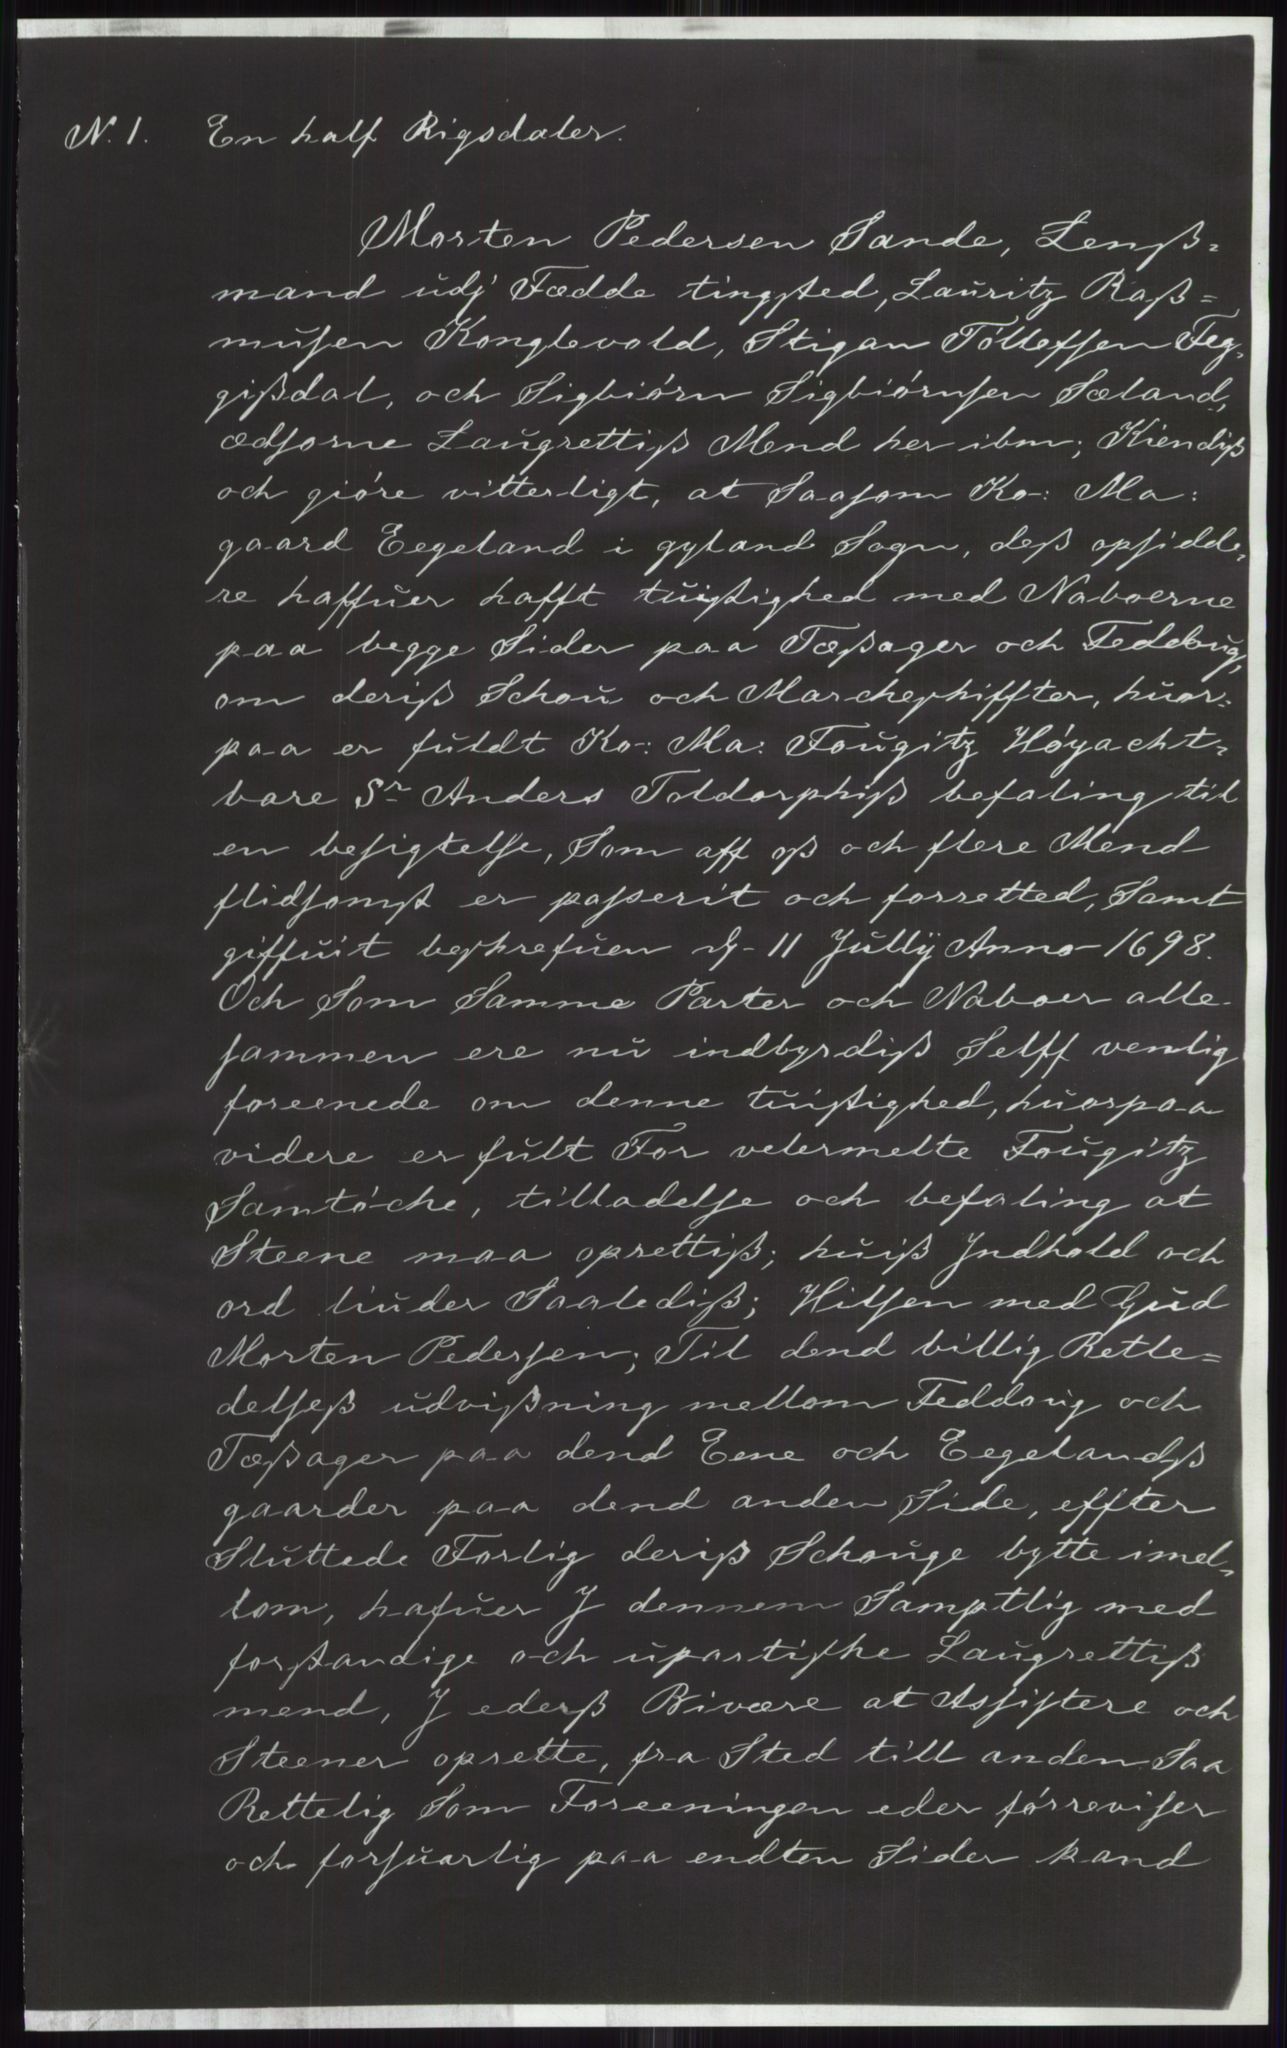 N. 1. En half Rigsdaler.
Morten Pedersen Sande, Lenß-
mand udj Fædde tingsted, Lauritz Raß=
musen Konglevold, Stigan Tóllefsen Feg-
gißdal, och Sigbiórn Sigbiórnsen Sæland,
ædsorne Laugrettiß Mend her ibm; Kiendiß
och gióre vitterligt, at Saasom Ko: Ma:
gaard Eegeland i gyland Sogn, deß opsidde-
re haffuer hafft tuistighed med Naboerne
paa begge Sider paa Tæßager och Feddoug,
om deriß Schou och Marcheskiffter, huor-
paa er fuldt Ko: Ma: Fougitz Høyacht-
bare Sr Anders Toldorphiß befaling til
en besigtelse, Som aff oß och flere Mend
flidsomst er passerit och forretted, Samt
giffuit beskrefuen d. 11 Jullij Anno 1698.
Och Som Samme Parter och Naboer alle-
sammen ere nu indbyrdiß Selff venlig
foreenede om denne tuistighed, huorpaa
videre er fult For velermelte Fougitz
Samtóche, tilladelse och befaling at
Steene maa oprettiß; huiß Jndhold och
ord liuder Saalediß; Hilsen med Gud
Morten Pedersen; Til dend billig Rette=
delseß udvißning mellom Feddoug och
Tæßager paa dend Eene och Eegelandß
gaarder paa dend anden Side, effter
Sluttede Forlig deriß Schouge bytte imel-
lom, hafuer J dennem Samptlig med
forstandige och upartiske Laugrettiß
mend, J ederß Bivære at Assistere och
Steener oprette, fra Sted till anden Saa
Rettelig Som Foreeningen eder fórreviser
och forsuarlig paa endten Sider kand